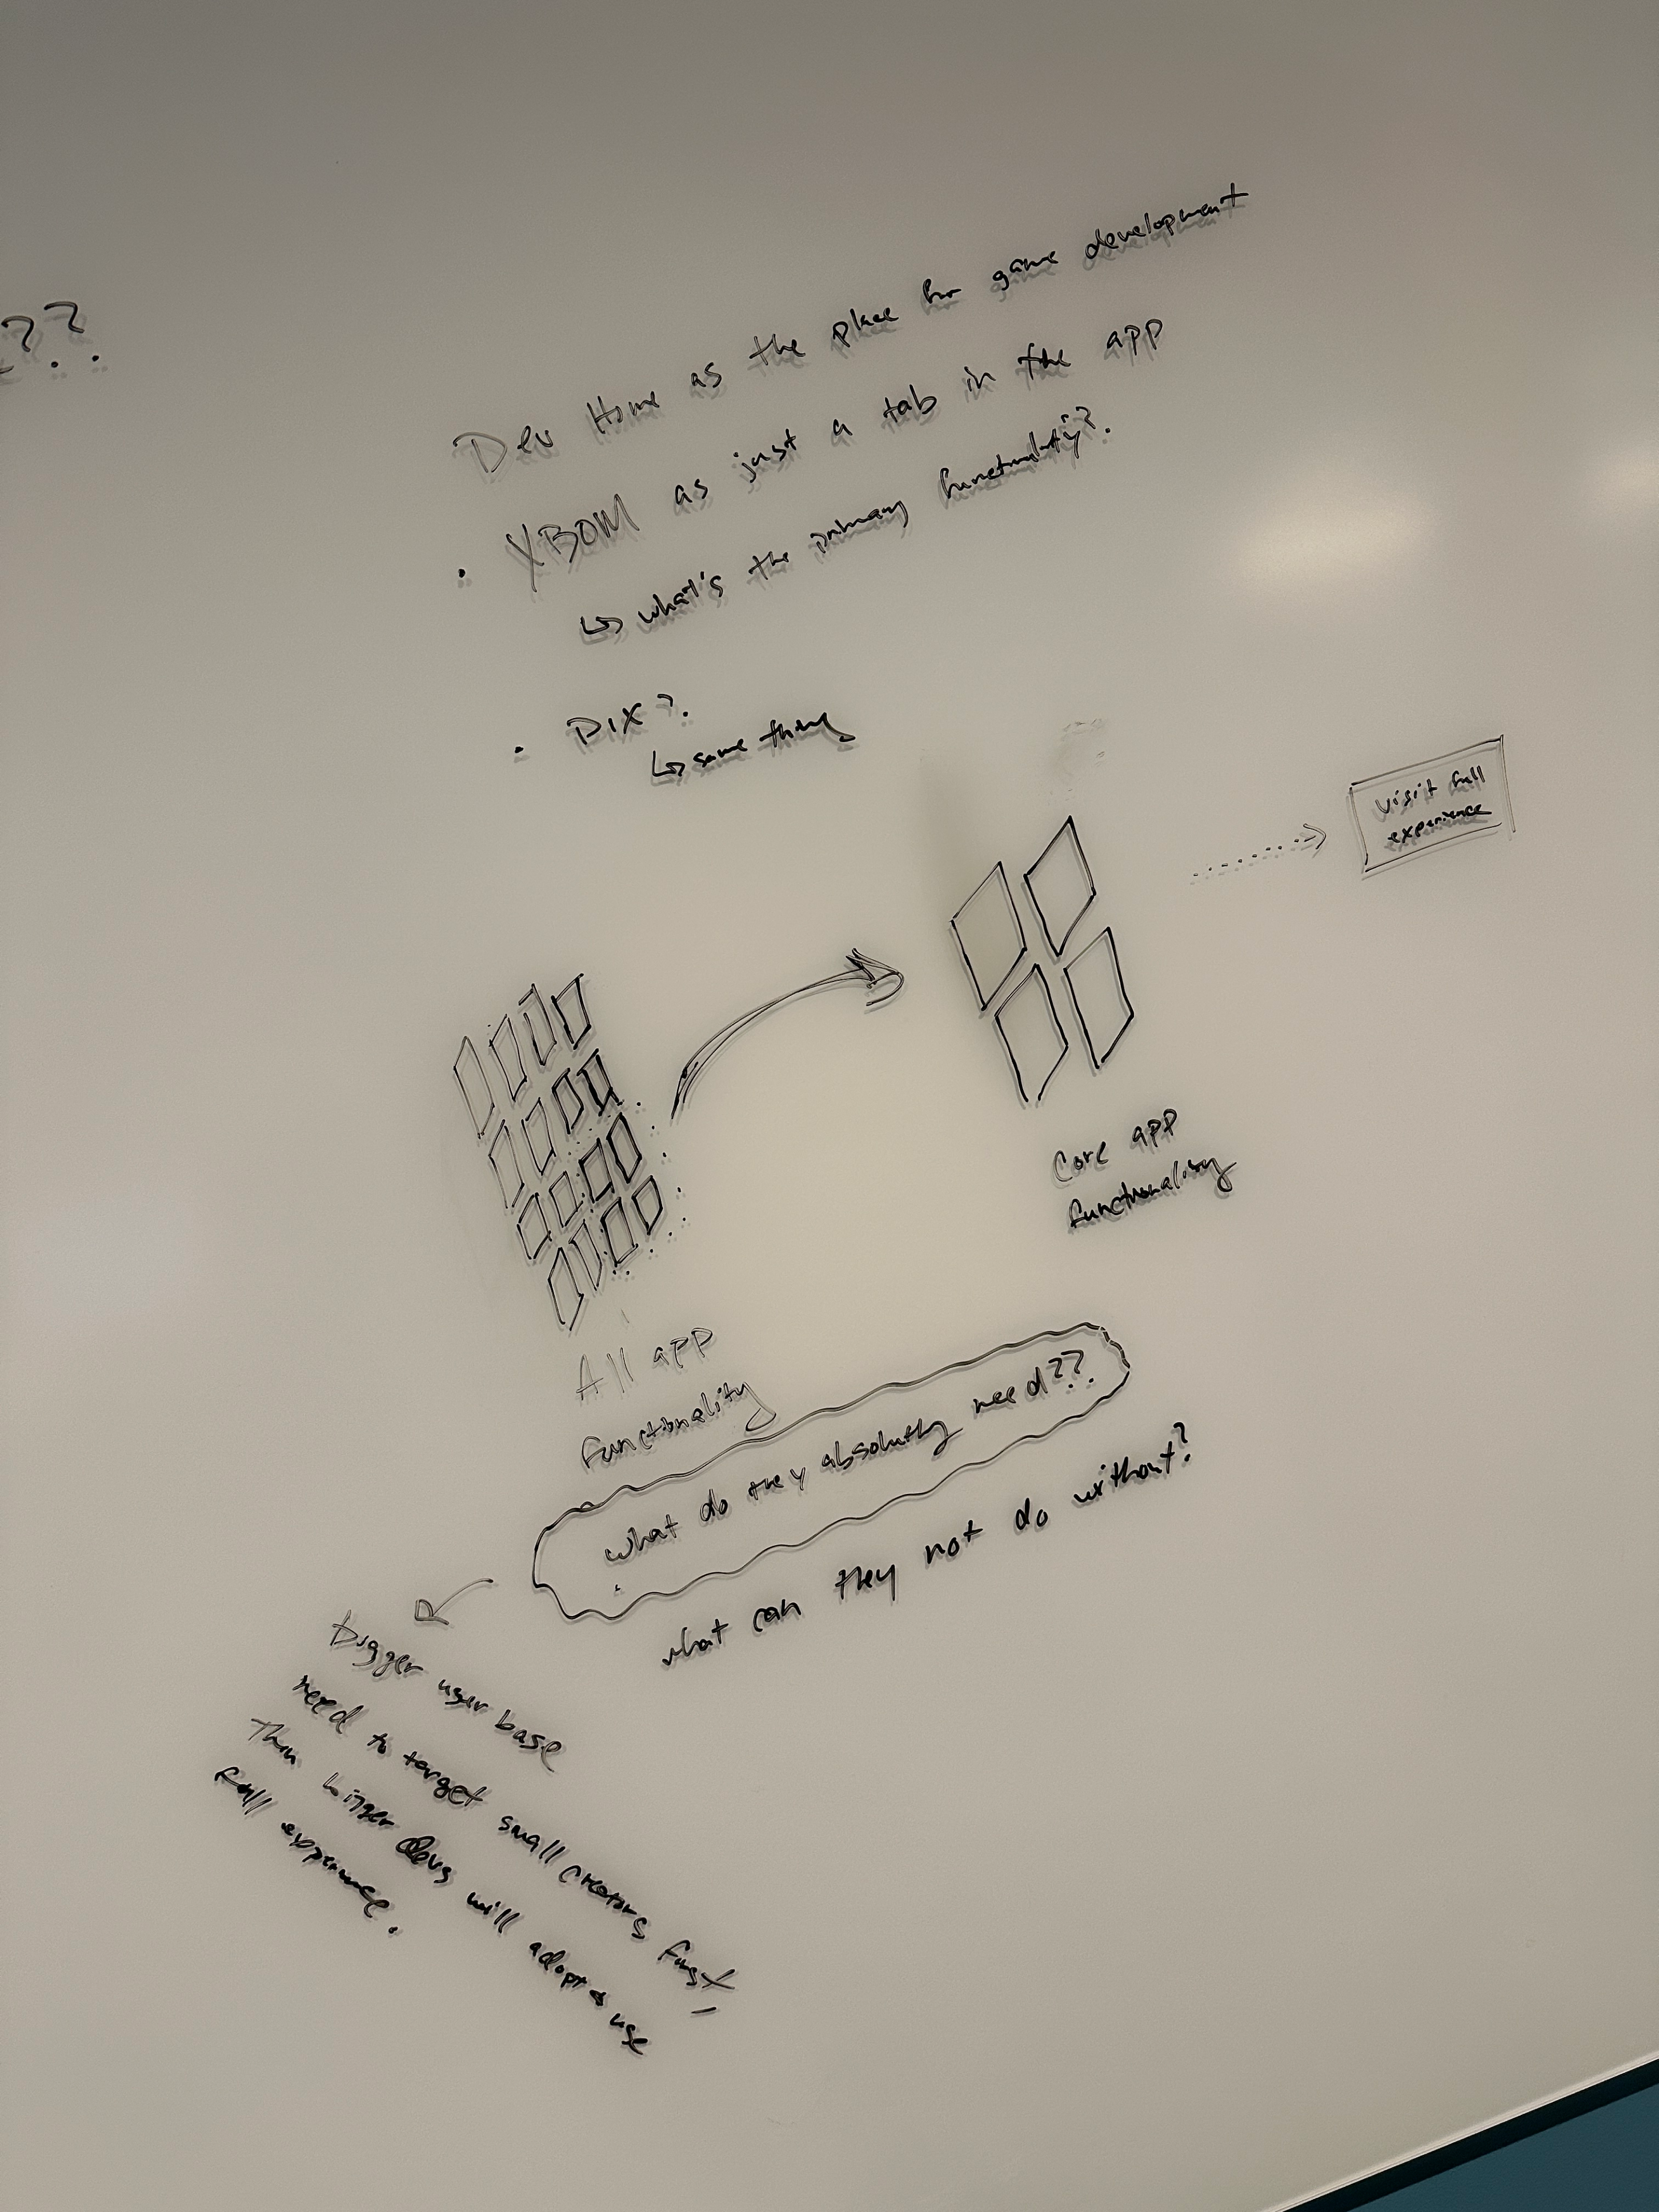 ??
Dev Home as the place for game development
• XBOM as just a tab in the app
↳ what's the primary functionality?
• PIX?
↳ same thing
visit full
experience
Core app
functionality
All app
functionality
what do they absolutely need??
what can they not do without?
bigger user base
need to target small creators first,
Then bigger devs will adopt & use
full experience.